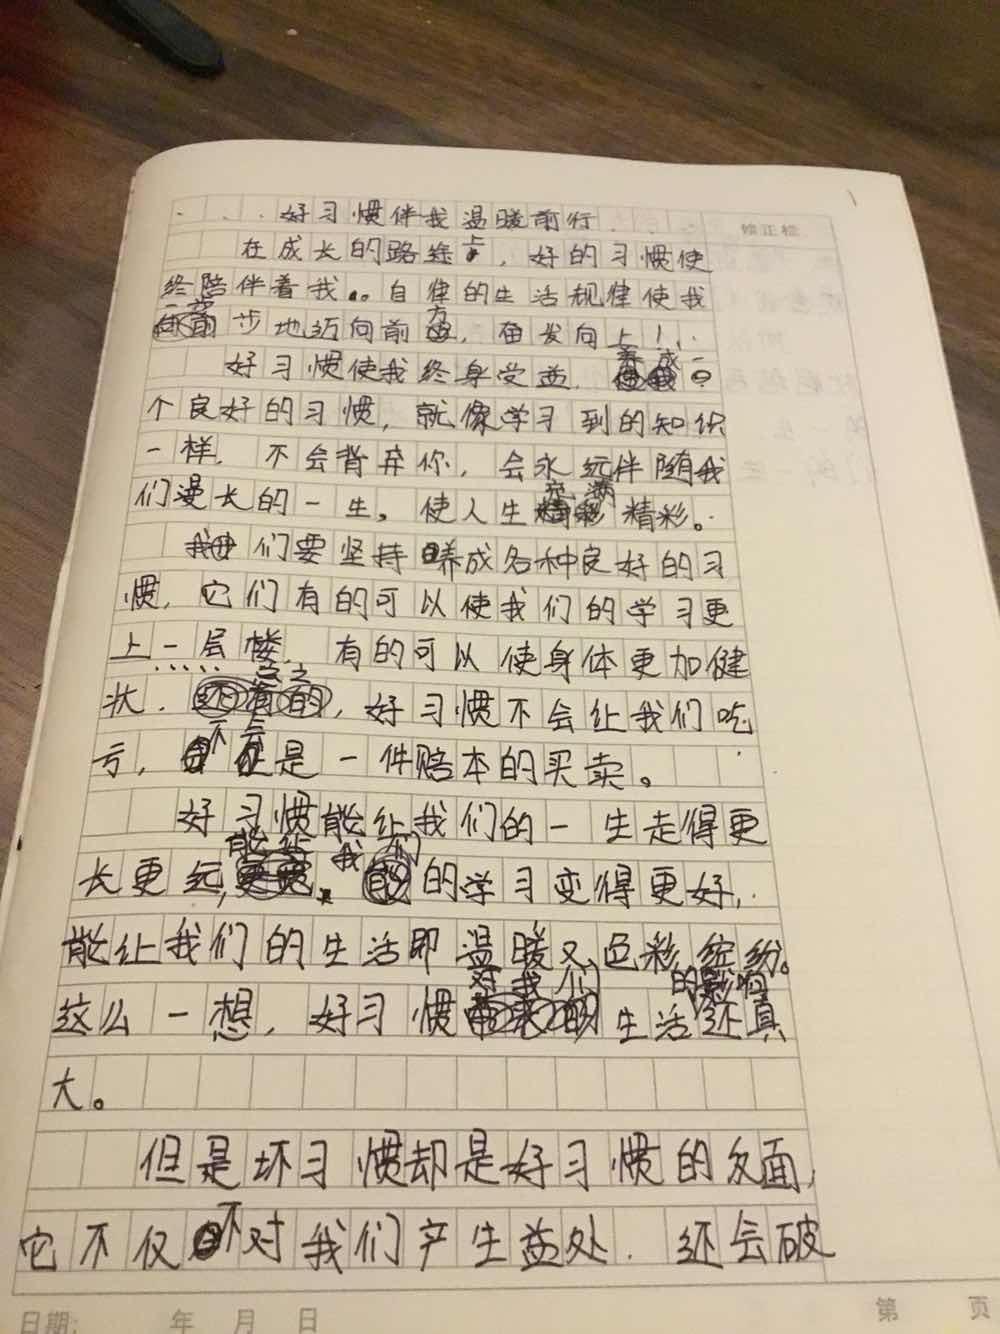 修正栏
好习惯伴我温暖前行
在成长的路途上,好的习惯使
终陪伴着我。自律的生活规律使我
一步步地迈向前方,奋发向上!
好习惯使我终身受益,养成一
个良好的习惯,就像学习到的知识
一样,不会背弃你,会永远伴随我
们漫长的一生,使人生充满精彩。
我们要坚持养成各种良好的习
惯,它们有的可以使我们的学习更
上一层楼,有的可以使身体更加健
状,总之,好习惯不会让我们吃
亏,不会是一件赔本的买卖。
好习惯能让我们的一生走得更
长更远,能让我们的学习变得更好,
能让我们的生活即温暖又色彩缤纷。
这么一想,好习惯对我们生活的影响还真
大。
但是坏习惯却是好习惯的反面,
它不仅不对我们产生益处,还会破
日期: 年 月 日
第 页